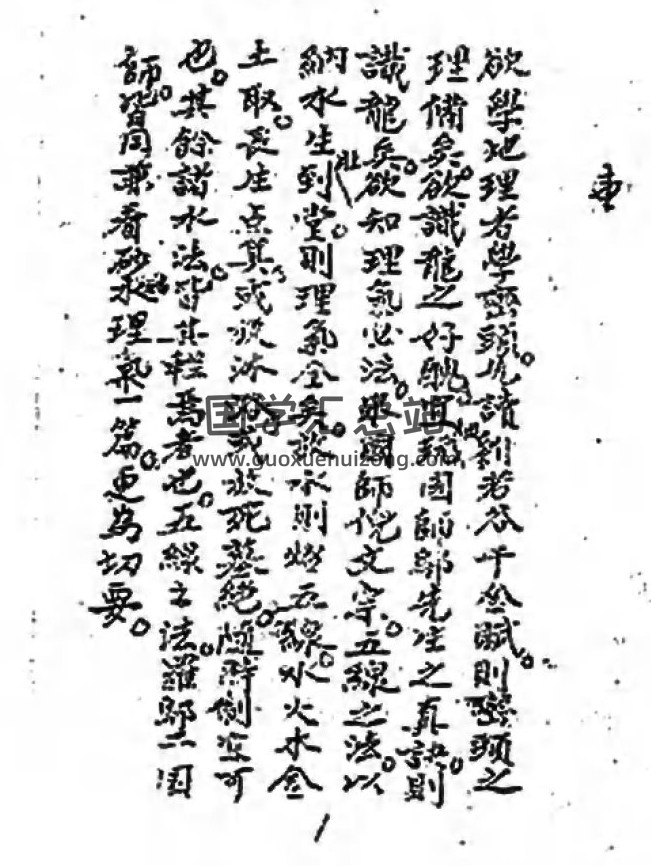 欲學地理者學巒頭。先讀劉若谷千金賦。則巒頭之
理備矣。欲識龍之好醜。宜玩國師鄒先生之真訣。則
識龍矣。欲知理氣必法。眼國師倪文宗。五線之法。以
納水生到堂。則理氣全矣。放水則照五線。水火木金
土取。長生点算。或放沐浴。或放死墓絕。随時制宜可
也。其餘諸水法。皆其粗焉者也。五線之法。羅鄒二國
師皆同兼看砂水理氣一篇。更為切要。
国学汇总站
www.guoxuehuizong.com
1